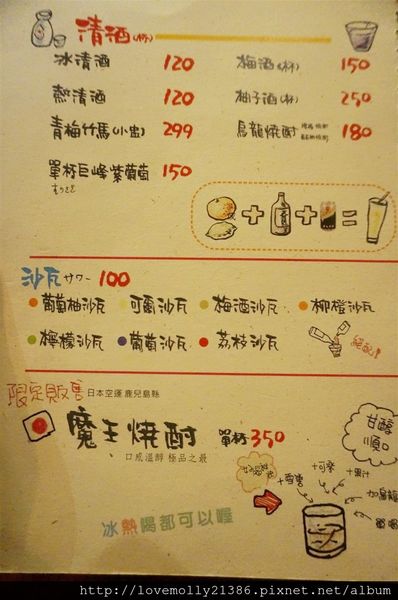 清酒(杯)
冰清酒 120 梅酒(杯) 150
熱清酒 120 柚子酒(杯) 250
青梅竹馬(小盅) 299 烏龍焼酎 180
單杯巨峰紫葡萄 150
沙瓦 サワー 100
葡萄柚沙瓦 可爾沙瓦 梅酒沙瓦 柳橙沙瓦
檸檬沙瓦 葡萄沙瓦 荔枝沙瓦
絕配!
限定販售 日本空運 鹿兒島縣
魔王焼酎 單杯 350
口感溫醇 極品之最
甘醇
順口
+可樂
+果汁
+雪碧
加烏龍
冰熱喝都可以喔
http://lovemolly21386.pixnet.net/album